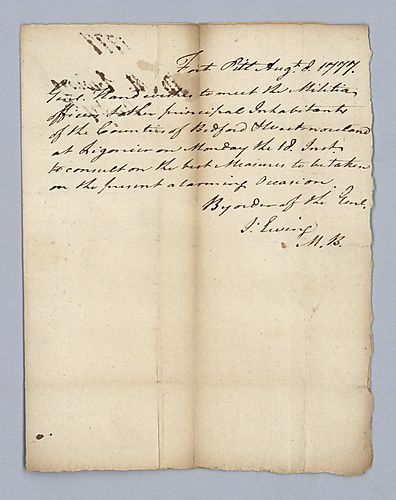 Fort Pitt Augt. 8. 1777.
Genl. Hand wishes to meet the Militia
officers & other principal Inhabitants
of the Counties of Bedford & Westmoreland
at Ligonier on Monday the 18. Inst.
to consult on the best Measures to be taken
on the present alarming Occasion.
By order of the Genl.
J: Ewing
M. B.